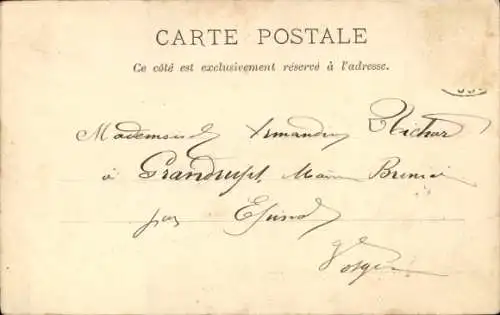 CARTE POSTALE
Ce côté est exclusivement réservé à l'adresse.
Mademoiselle Armandine Richard
à Grandrupt
par Epinal
Vosges